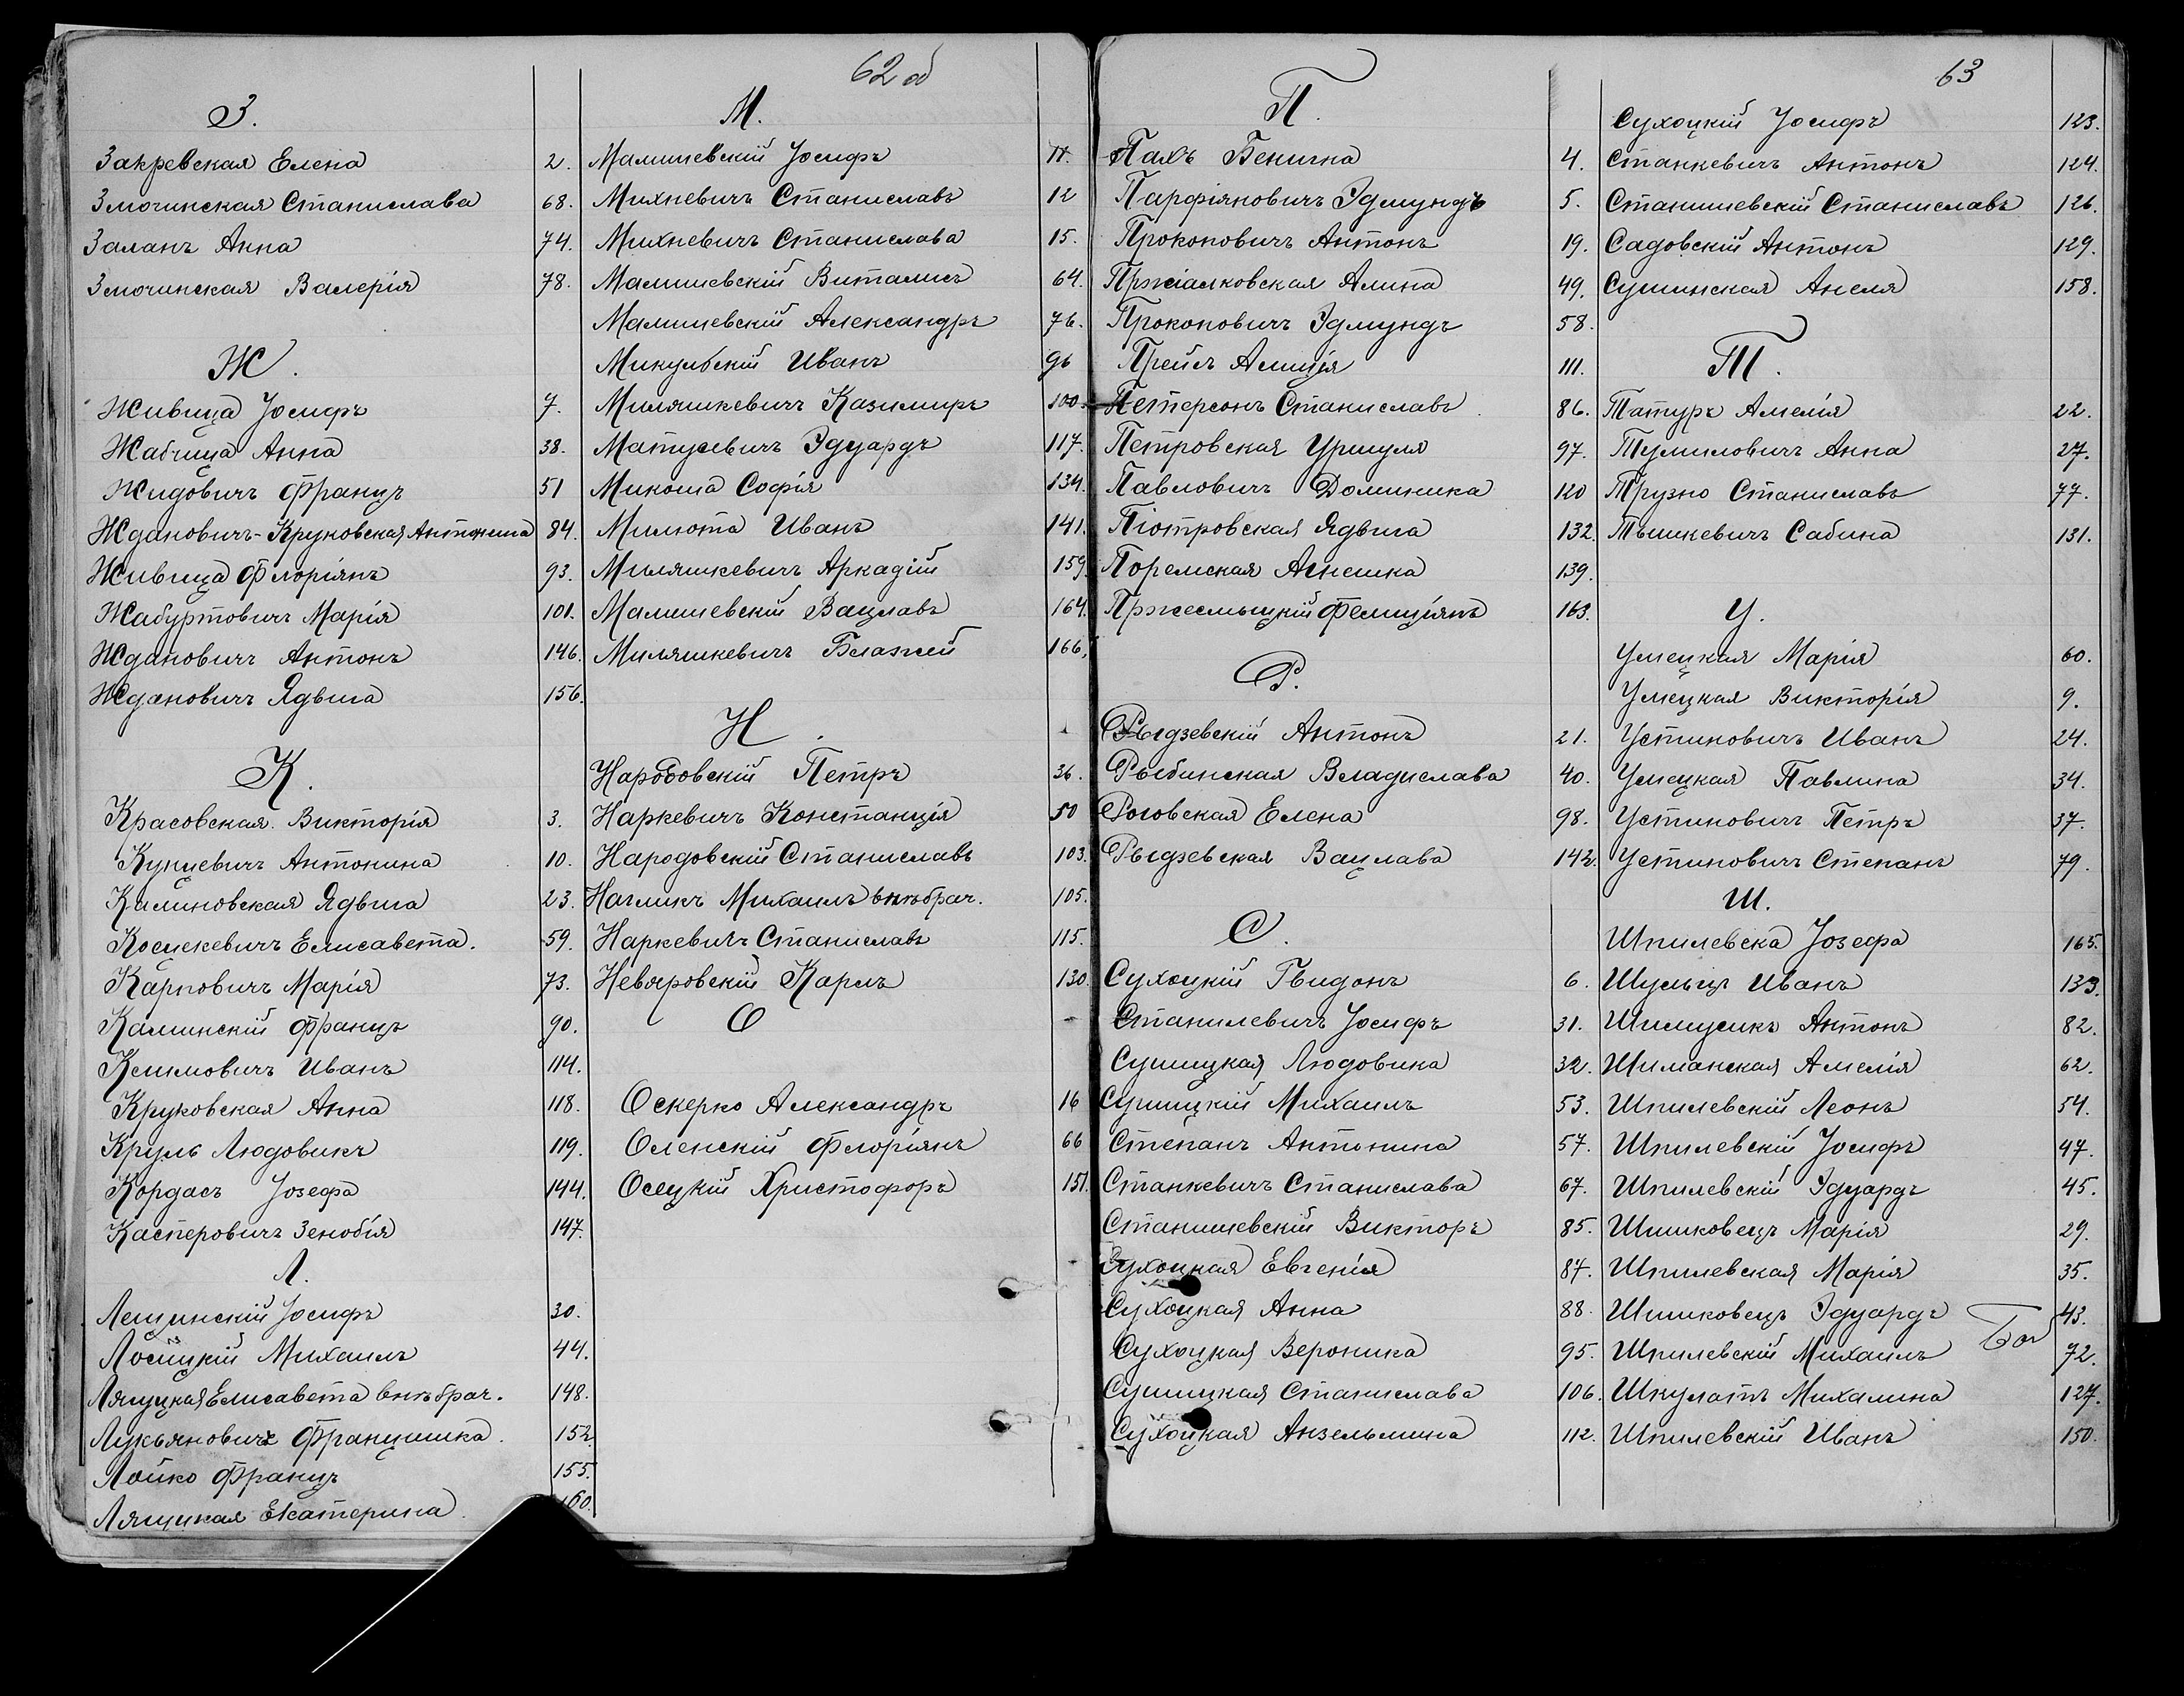 62 об
З.
Закревская Елена 2.
Змочинская Станислава 68.
Заланъ Анна 74.
Змочинская Валерія 78.
Ж.
Живица Іосифъ 7.
Жабчица Анна 38.
Жидовичъ Францъ 51
Ждановичъ-Круковская Антонина 84.
Живица Флоріянъ 93.
Жабуртовичъ Марія 101.
Ждановичъ Антонъ 146.
Ждановичъ Ядвига 156.
К.
Красовская Викторія 3.
Кунцевичъ Антонина 10.
Калиновская Ядвига 23.
Косцекевичъ Елисавета. 59.
Карповичъ Марія 73.
Калинскій Францъ 90.
Климовичъ Иванъ 114.
Круковская Анна 118.
Круль Людовикъ 119.
Кордасъ Іозефа 144.
Касперовичъ Зенобія 147.
Л.
Лещинскій Іосифъ 30.
Лосицкій Михаилъ 44.
Лящцкая Елисавета внѣбрач. 148.
Лукьяновичъ Францишка 152.
Лойко Францъ 155.
Лящцкая Екатерина 160.
М.
Малишевскій Іосифъ 11.
Михневичъ Станиславъ 12
Михневичъ Станислава 15.
Малишевскій Виталисъ 64.
Малишевскій Александръ 76.
Микульскій Иванъ 96
Миляшкевичъ Казимиръ 100.
Матусевичъ Эдуардъ 117.
Микоша Софія 134.
Милюта Иванъ 141.
Миляшкевичъ Аркадій 159.
Малишевскій Вацлавъ 164.
Миляшкевичъ Блажей 166.
Н.
Народовскій Петръ 36.
Наркевичъ Констанція 50
Народовскій Станиславъ 103.
Нагликъ Михаилъ внѣбрач. 105.
Наркевичъ Станиславъ 115.
Невяровскій Карлъ 130.
О
Оскерко Александръ 16
Оленскій Флоріянъ 66
Осецкій Христофоръ 151.
П.
Пахъ Бенигна 4.
Парфіяновичъ Эдмундъ 5.
Прокоповичъ Антонъ 19.
Пржіалковская Алина 49.
Прокоповичъ Эдмундъ 58.
Прейсъ Алиція 111.
Петерсонъ Станиславъ 86.
Петровская Уршуля 97.
Павловичъ Доминика 120
Піотровская Ядвига 132.
Поремская Агнешка 139.
Пржесмыцкій Фелиціянъ 163.
Р.
Рыдзевскій Антонъ 21.
Рыбинская Владислава 40.
Роговская Елена 98.
Рыдзевская Вацлава 142.
С.
Сухоцкій Гвидонъ 6.
Станилевичъ Іосифъ 31.
Сушицкая Людовика 32.
Сушицкій Михаилъ 53.
Степанъ Антонина 57.
Станкевичъ Станислава 67.
Станишевскій Викторъ 85.
Сухоцкая Евгенія 87.
Сухоцкая Анна 88.
Сухоцкая Вероника 95.
Сушицкая Станислава 106.
Сухоцкая Анзельмина 112.
63
Сухоцкій Іосифъ 123.
Станкевичъ Антонъ 124.
Станишевскій Станиславъ 126.
Садовскій Антонъ 129.
Сушинская Анеля 158.
Т.
Татуръ Амелія 22.
Тумиловичъ Анна 27.
Трузно Станиславъ 77.
Тышкевичъ Сабина 131.
У.
Умецкая Марія 60.
Умецкая Викторія 9.
Устиновичъ Иванъ 24.
Умецкая Павлина 34.
Устиновичъ Петръ 37.
Устиновичъ Степанъ 79.
Ш.
Шпилевска Іозефа 165.
Шульцъ Иванъ 133.
Шимусикъ Антонъ 82.
Шиманская Амелія 62.
Шпилевскій Леонъ 54.
Шпилевскій Іосифъ 47.
Шпилевскій Эдуардъ 45.
Шишковецъ Марія 29.
Шпилевская Марія 35.
Шишковецъ Эдуардъ 43.
Шпилевскій Михаилъ 72.
Шкулатъ Михалина 127.
Шпилевскій Иванъ 150.